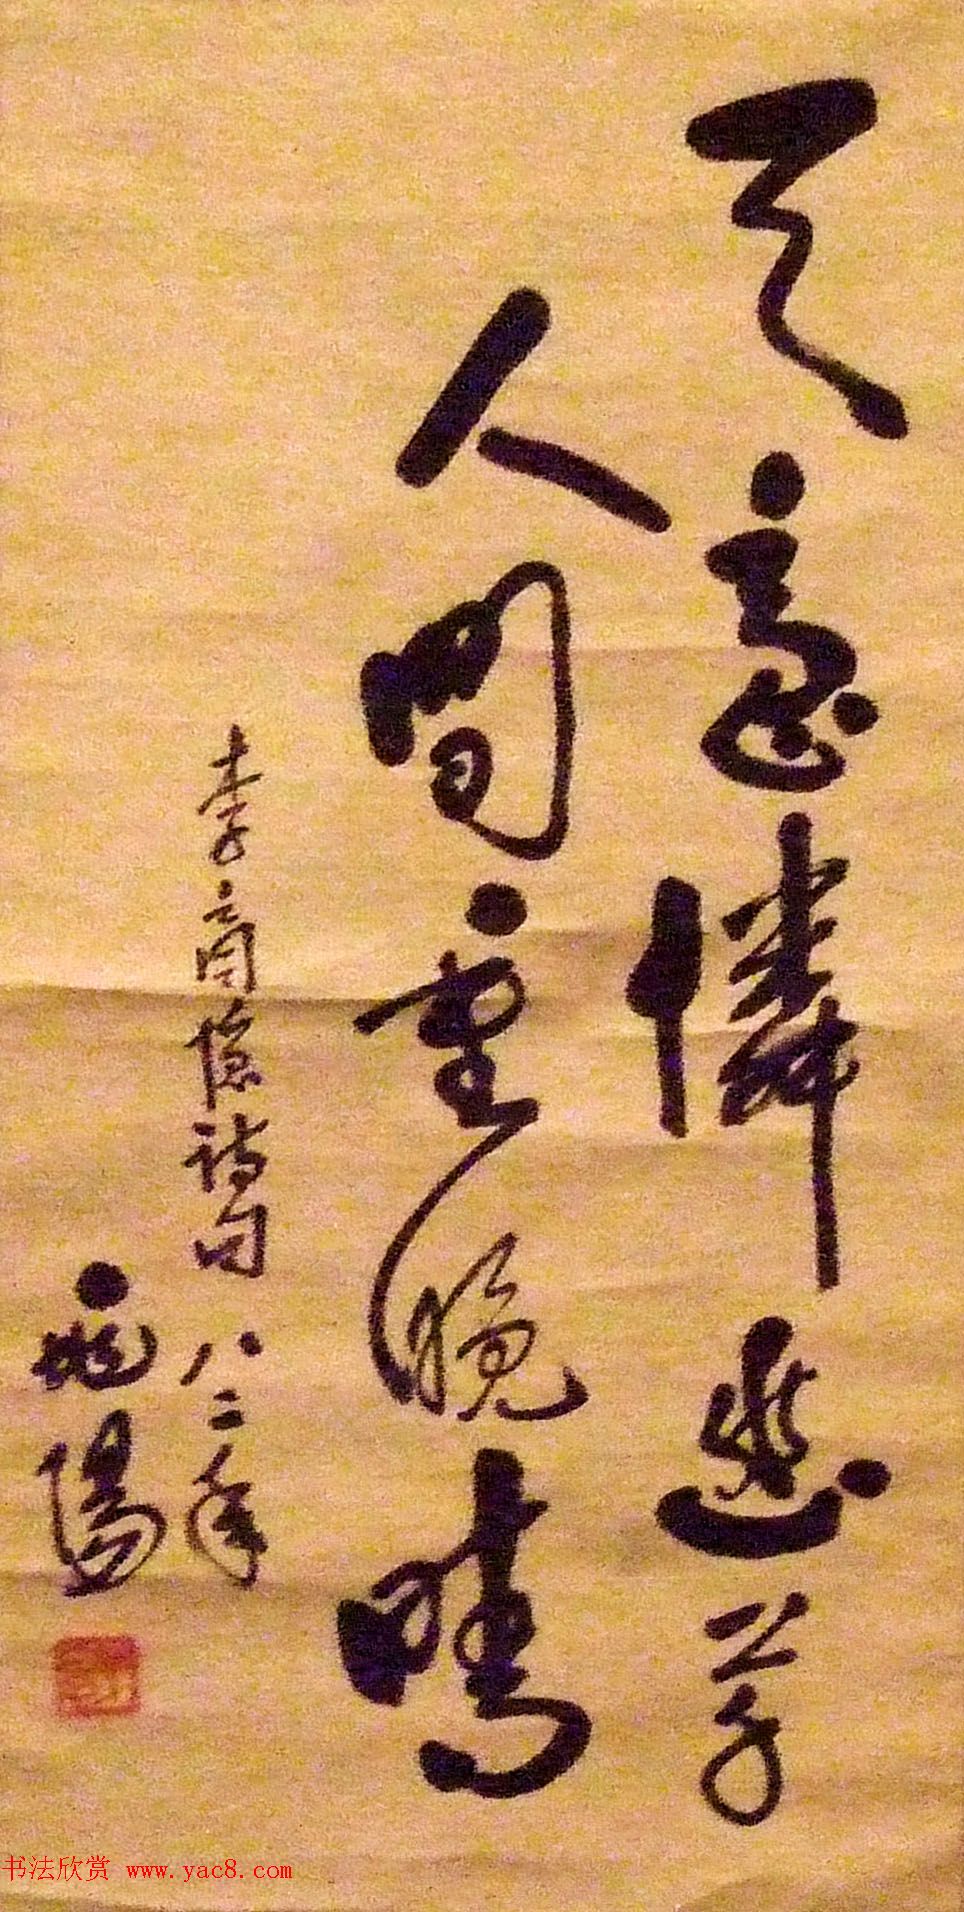 天意憐幽草
人間重晚晴
李商隱詩句 八二年
歐陽
书法欣赏 www.yac8.com